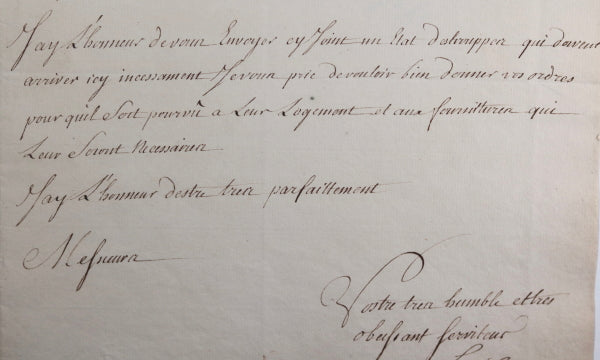 Jay L'honneur de vous Envoyer cy Joint un Etat des trouppes qui doivent
arriver icy incessament Je vous prie de vouloir bien donner vos ordres
pour quil Soit pourvû a Leur Logement et aux fournitures qui
Leur Seront Necessaires
Jay L'honneur destre tres parfaittement
Messieurs
Vostre tres humble et tres
obeissant Serviteur